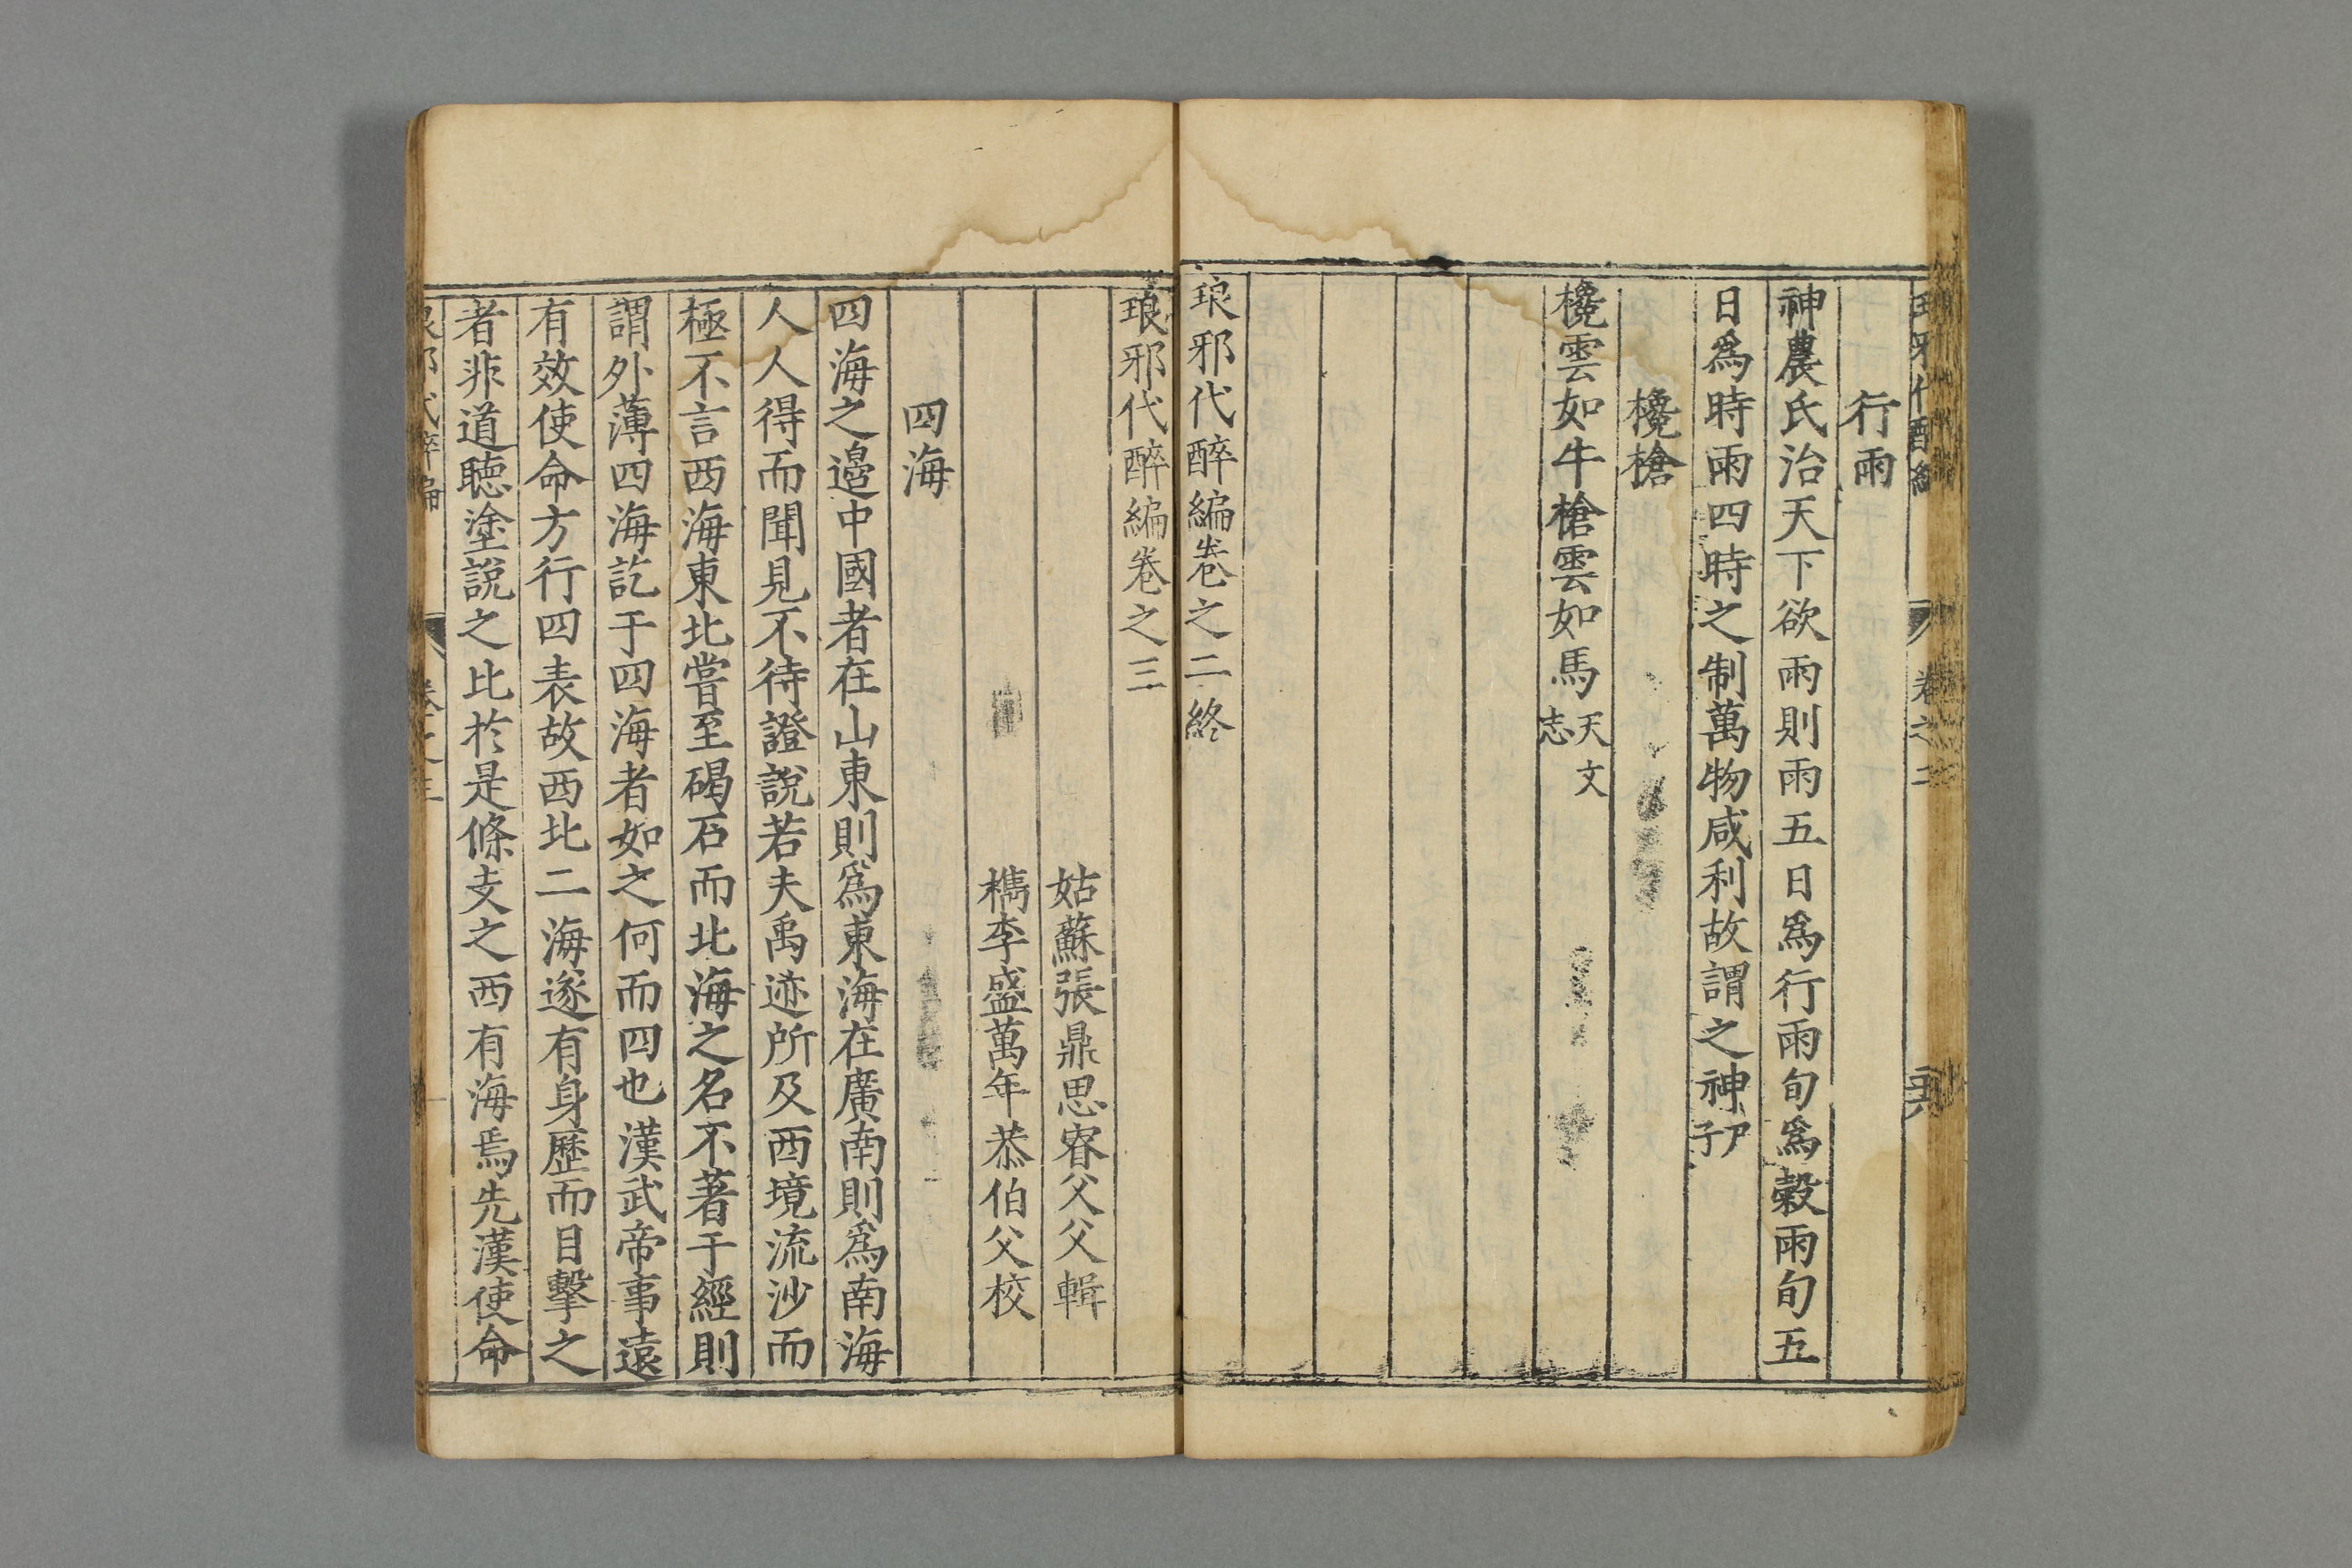 行雨
神農氏治天下欲雨則雨五日爲行雨旬爲穀雨旬五
日爲時雨四時之制萬物咸利故謂之神尸子
欃槍
欃雲如牛槍雲如馬天文志
琅邪代醉編卷之二終
琅邪代醉編卷之三
姑蘇張鼎思睿父父輯
檇李盛萬年恭伯父校
四海
四海之邉中國者在山東則爲東海在廣南則爲南海
人人得而聞見不待證說若夫禹迹所及西境流沙而
極不言西海東北嘗至碣石而北海之名不著于經則
謂外薄四海訖于四海者如之何而四也漢武帝事遠
有效使命方行四表故西北二海遂有身歷而目擊之
者非道聴塗說之比於是條支之西有海焉先漢使命